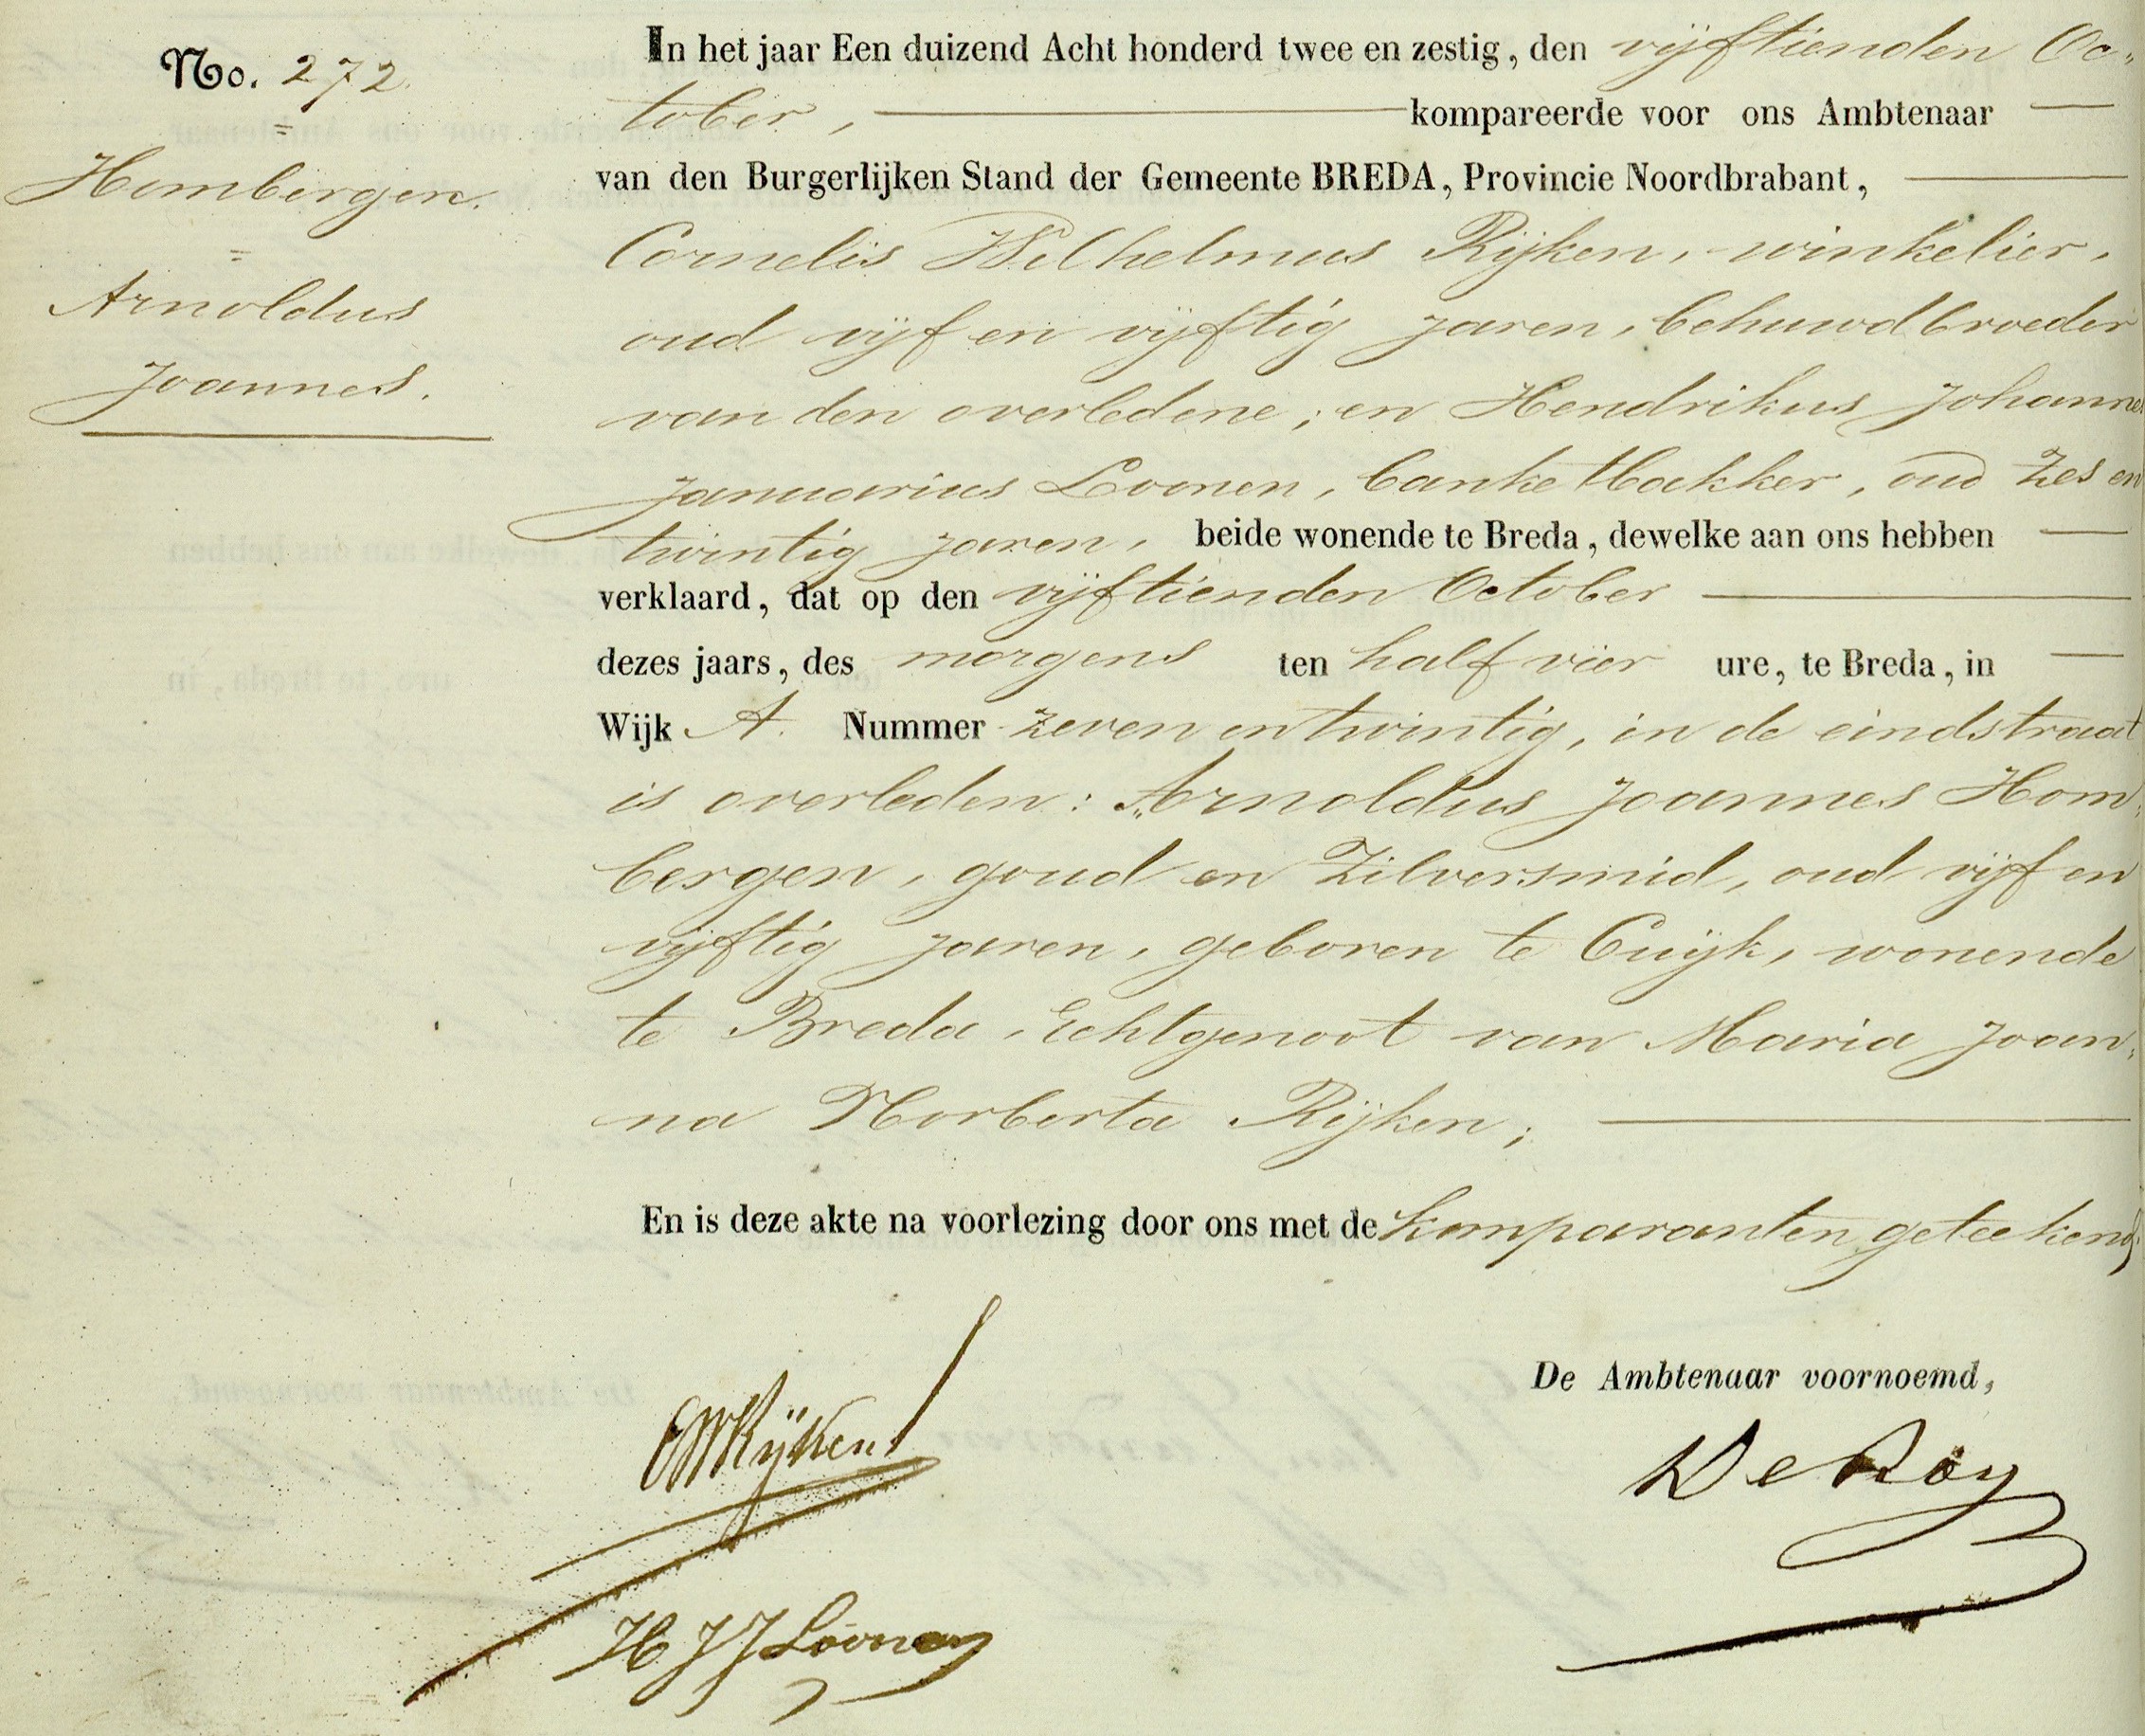 No. 272.
Hombergen.
Arnoldus
Joannes.
In het jaar Een duizend Acht honderd twee en zestig, den vijftienden Oc„
tober, kompareerde voor ons Ambtenaar
van den Burgerlijken Stand der Gemeente BREDA, Provincie Noordbrabant,
Cornelis Wilhelmus Rijken, winkelier,
oud vijf en vijftig jaren, behuwdbroeder
van den overledene; en Hendrikus Johannes
Januarius Loonen, banketbakker, oud zes en
twintig jaren, beide wonende te Breda, dewelke aan ons hebben
verklaard, dat op den vijftienden October
dezes jaars, des morgens ten half vier ure, te Breda, in
Wijk A. Nummer zeven en twintig, in de eindstraat
is overleden: Arnoldus Joannes Hom„
bergen, goud en Zilversmid, oud vijf en
vijftig jaren, geboren te Cuijk, wonende
te Breda, Echtgenoot van Maria Joan„
na Norberta Rijken;
En is deze akte na voorlezing door ons met de komparanten geteekend.
De Ambtenaar voornoemd,
CW Rijken
De Roy
H J J Loonen